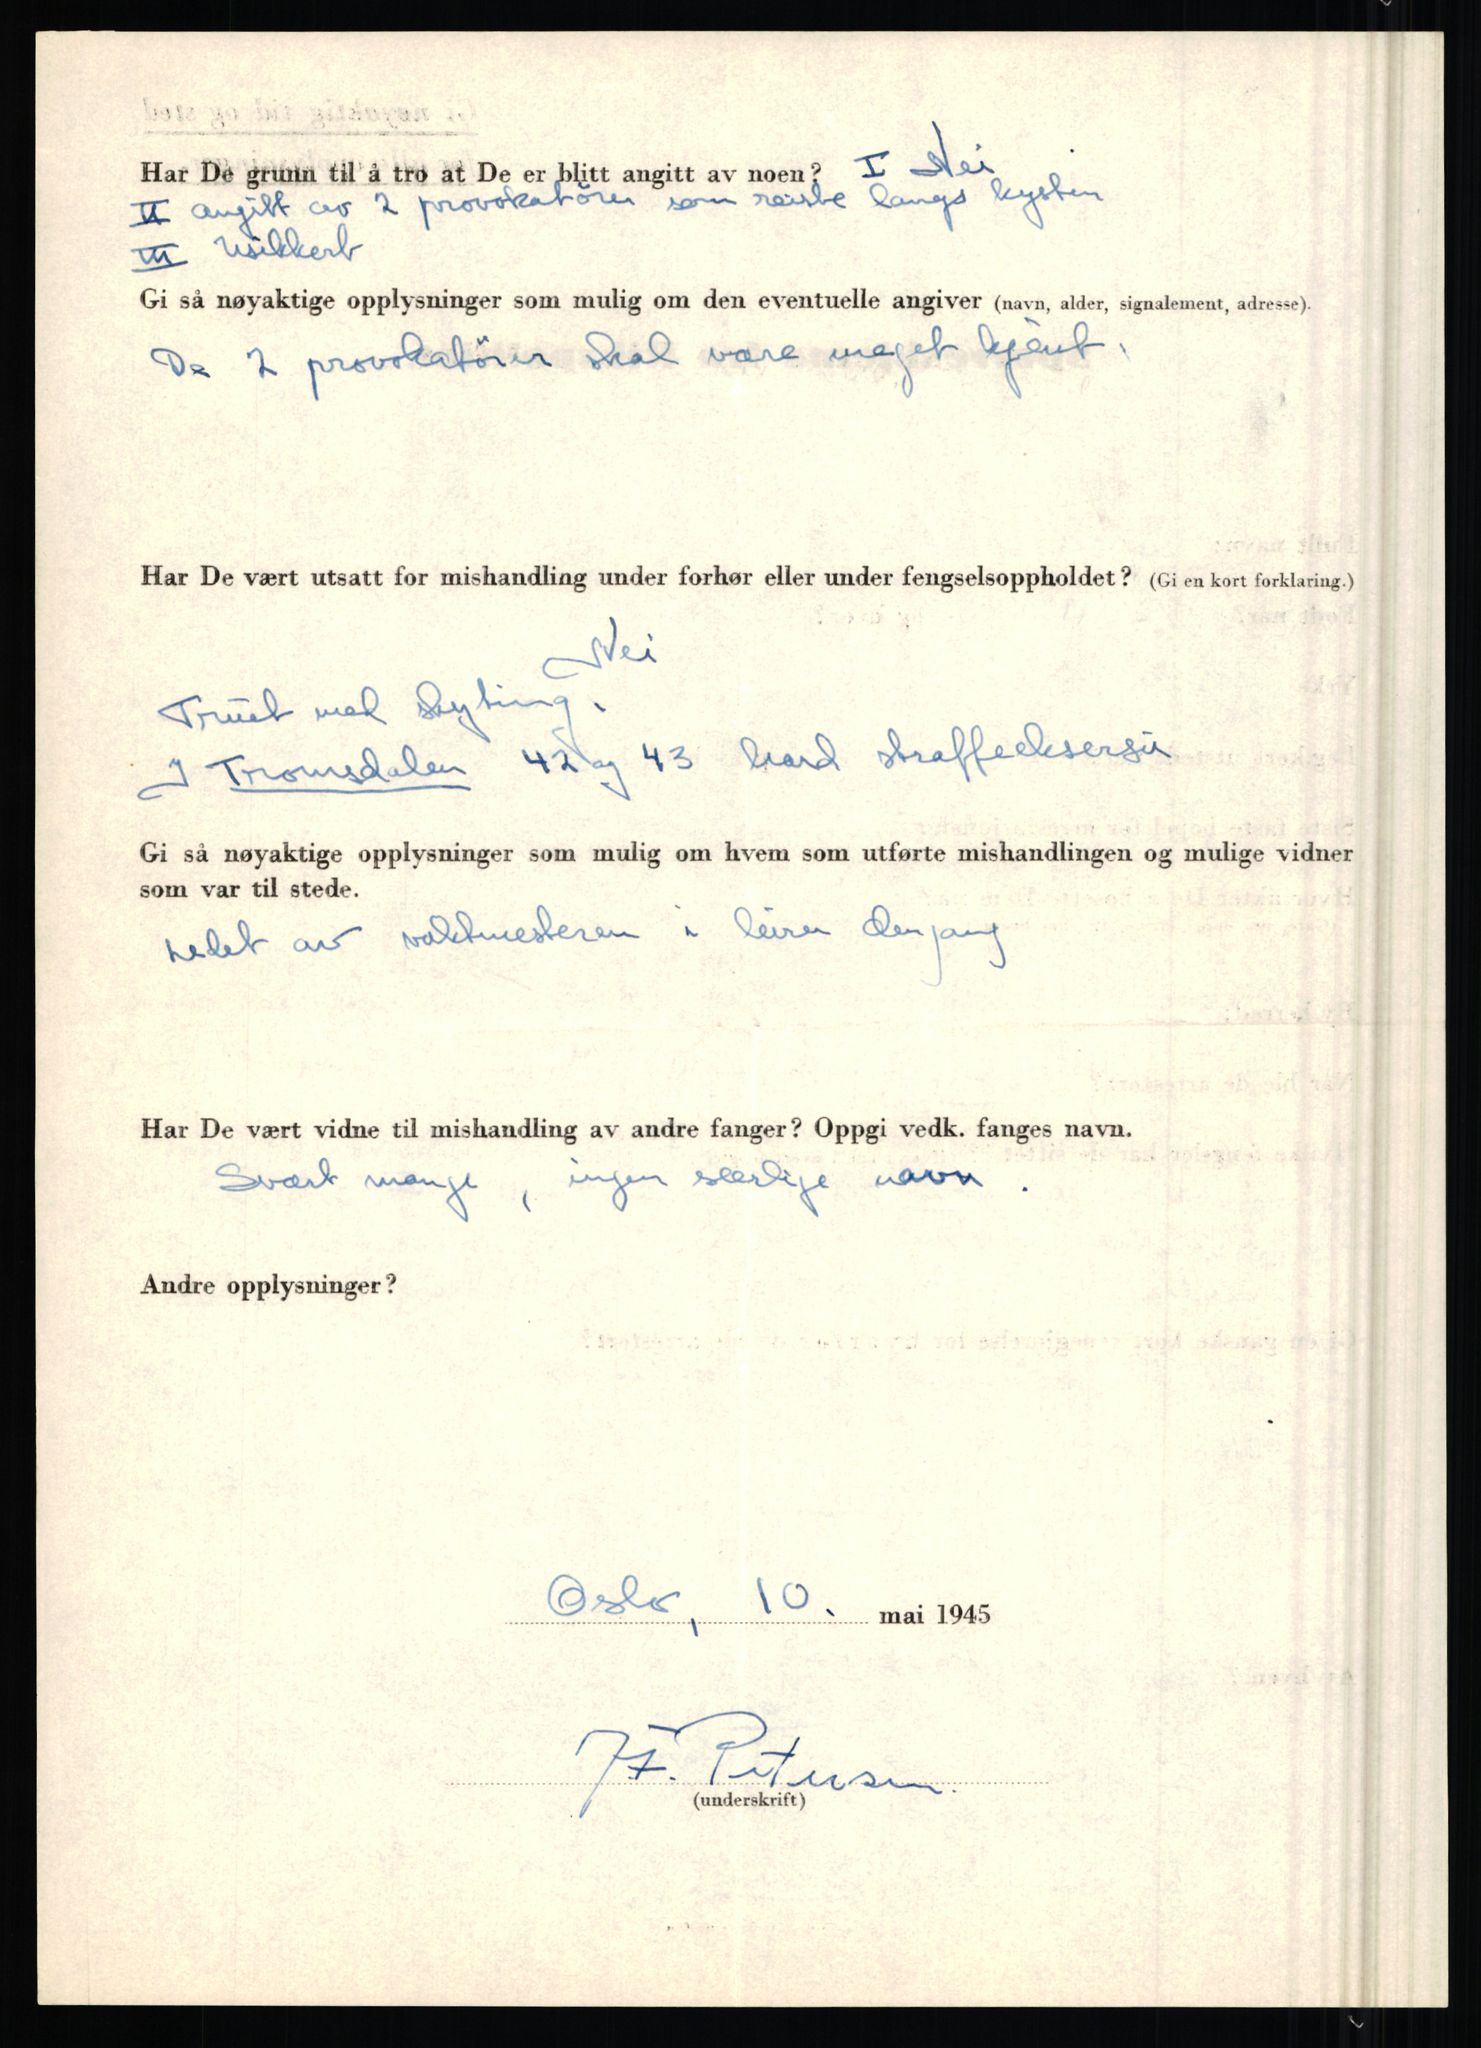 Har De grunn til å tro at De er blitt angitt av noen? I Nei
II angitt av 2 provokatörer som reiste langs kysten
III Usikkert
Gi så nøyaktige opplysninger som mulig om den eventuelle angiver (navn, alder, signalement, adresse).
De 2 provokatörer skal være meget kjent.
Har De vært utsatt for mishandling under forhør eller under fengselsoppholdet? (Gi en kort forklaring.)
Nei
Truet med skyting.
I Tromsdalen 42 og 43 hard straffeeksersis
Gi så nøyaktige opplysninger som mulig om hvem som utførte mishandlingen og mulige vidner
som var til stede.
Ledet av vaktmesteren i leiren dengang
Har De vært vidne til mishandling av andre fanger? Oppgi vedk. fanges navn.
Svært mange, ingen særlige navn.
Andre opplysninger?
Oslo, 10. mai 1945
Petersen.
(underskrift)